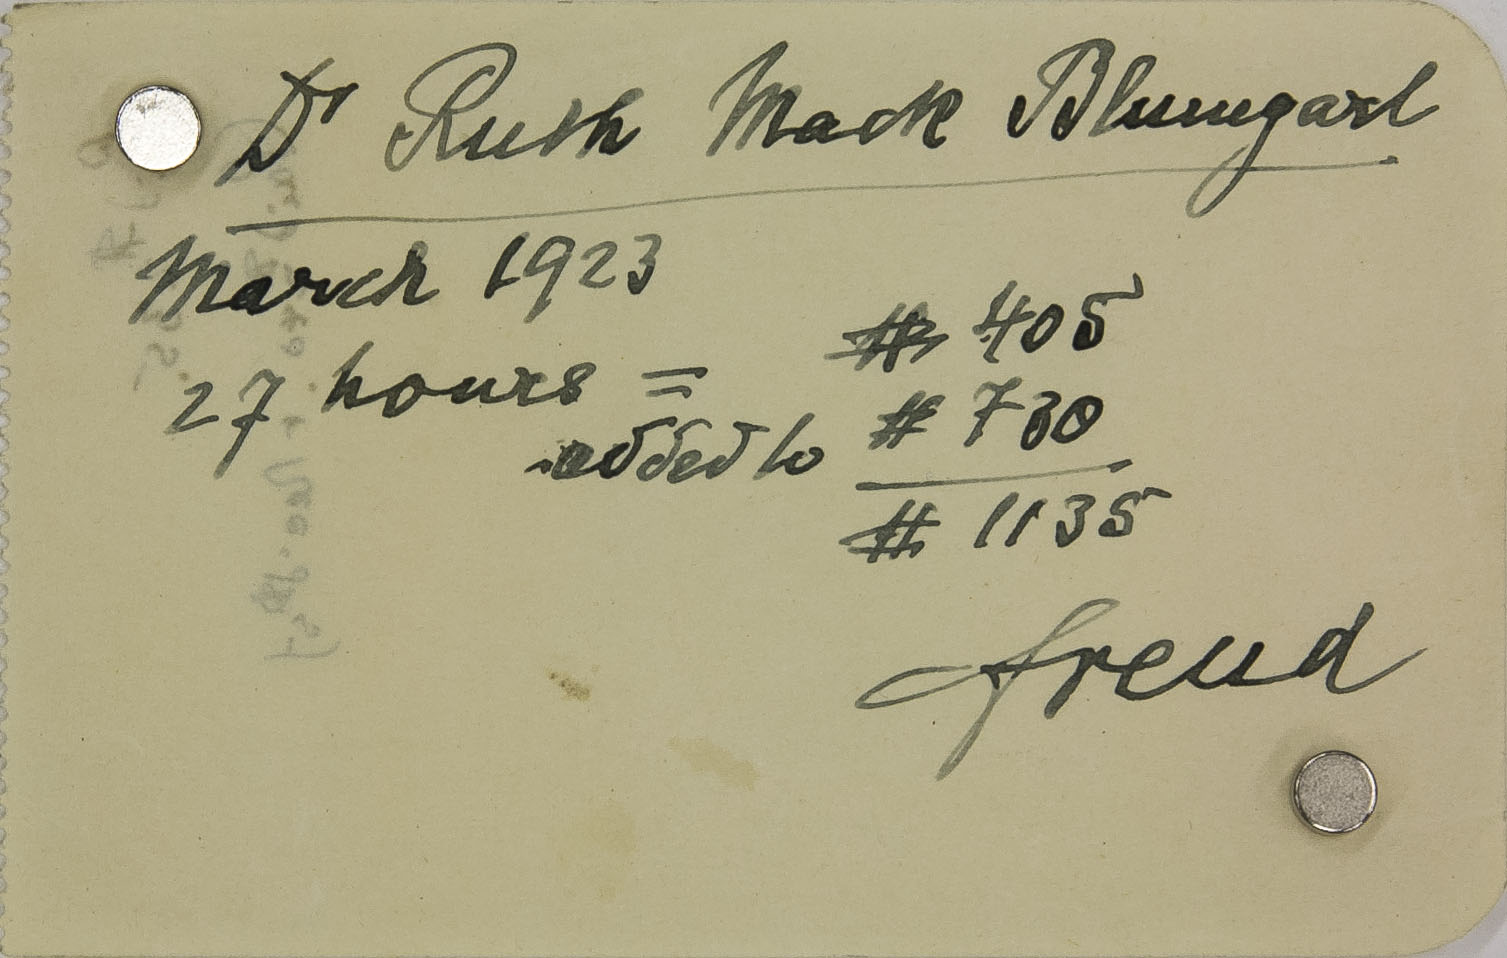 Dr Ruth Mack Blumgart
March 1923
27 hours = # 405
added to # 730
# 1135
Freud